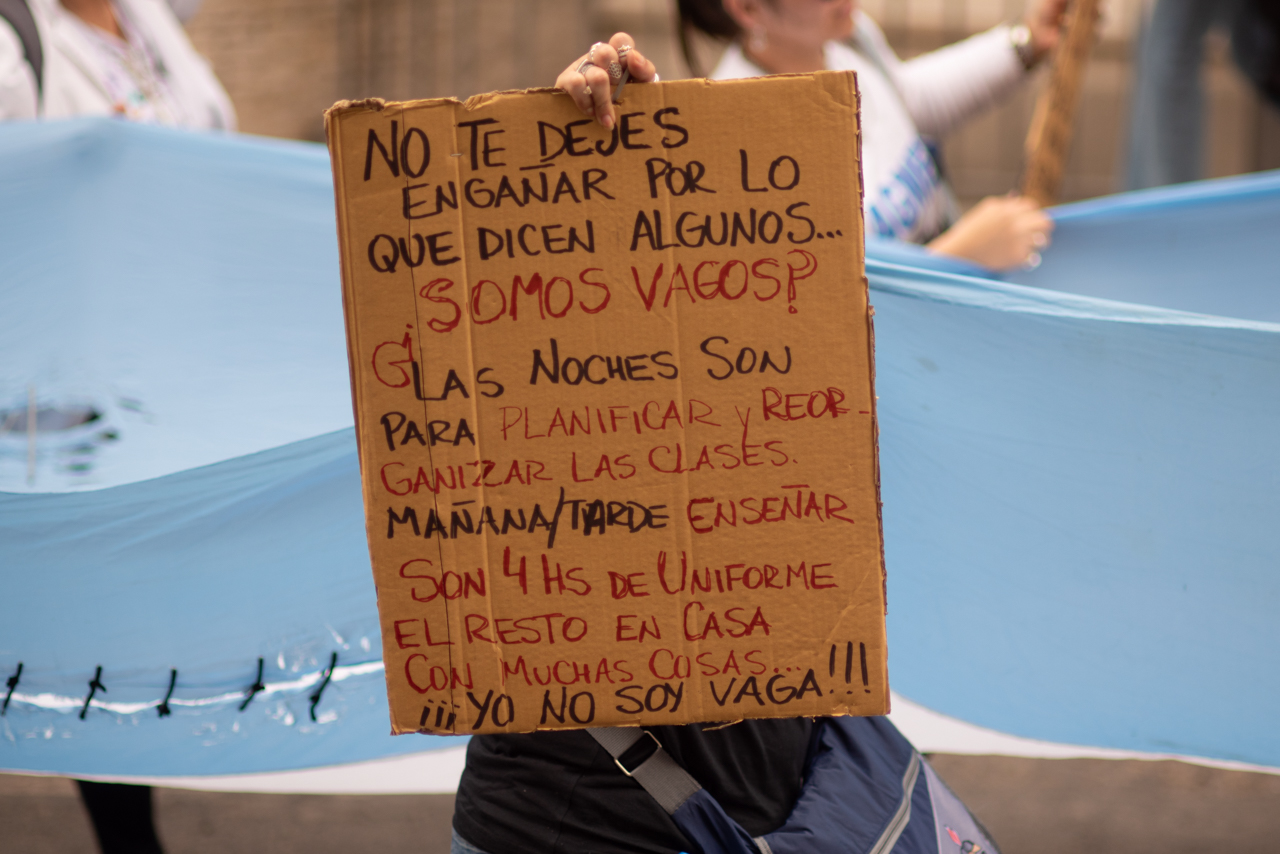 NO TE DEJES
ENGAÑAR POR LO
QUE DICEN ALGUNOS...
SOMOS VAGOS?
LAS NOCHES SON
PARA PLANIFICAR y REOR-
GANIZAR LAS CLASES.
MAÑANA/TARDE ENSEÑAR
SON 4 HS DE UNIFORME
EL RESTO EN CASA
CON MUCHAS COSAS...
¡¡¡YO NO SOY VAGA!!!